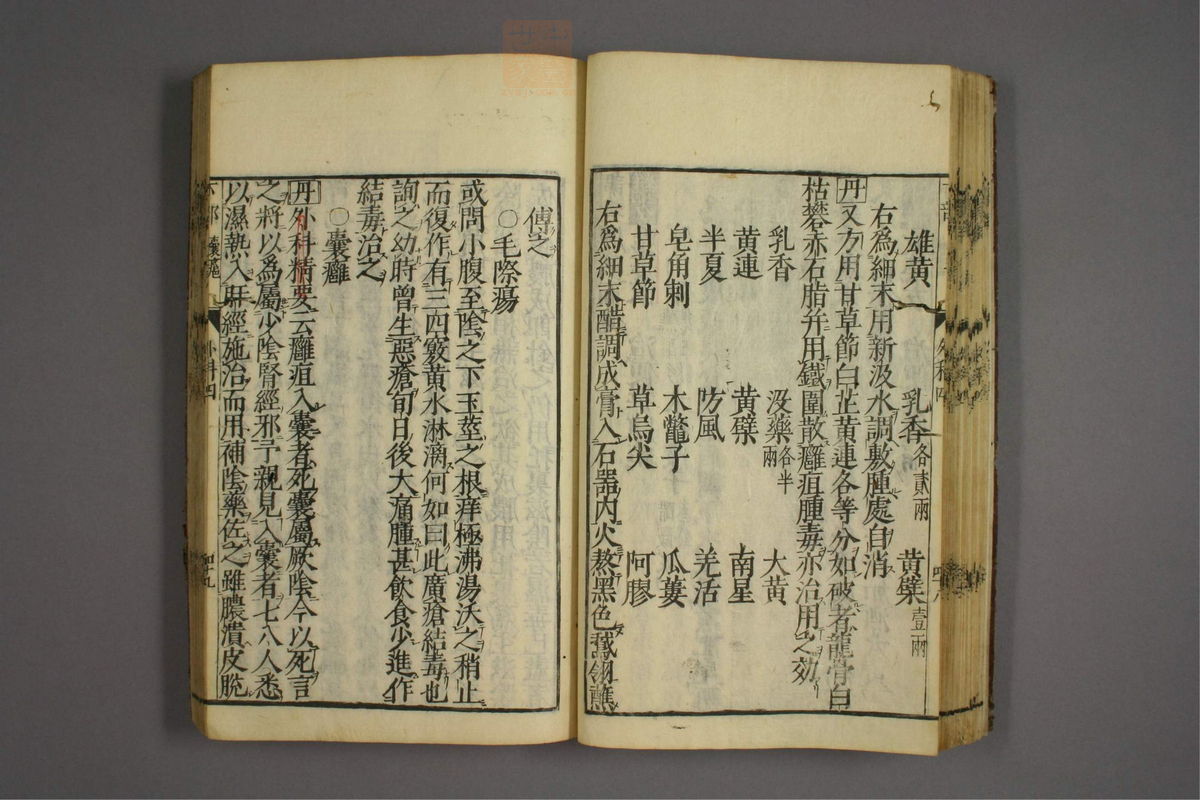 雄黄　乳香各貳兩　黄檗壹兩
右爲細末用新汲水調敷腫處自消
丹又方用甘草節白芷黄連各等分如破者龍骨白
枯礬赤石脂并用鐵圍散癰疽腫毒亦治用之効
乳香　没藥各半兩　大黄
黄連　黄檗　南星
半夏　防風　羗活
皂角刺　木鼈子　瓜蔞
甘草節　草烏尖　阿膠
右爲細末醋調成膏入石器内火熬黑色鵞翎蘸
傅之
○毛際瘍
或問小腹至陰之下玉莖之根痒極沸湯沃之稍止
而復作有三四竅黄水淋漓何如曰此廣瘡結毒也
詢之幼時曾生惡瘡旬日後大痛腫甚飲食少進作
結毒治之
○囊癰
丹外科精要云癰疽入囊者死囊屬厥陰今以死言
之將以爲屬少陰腎經邪予親見入囊者七八人悉
以濕熱入肝經施治而用補陰藥佐之雖膿潰皮脱
囊癰
外科四